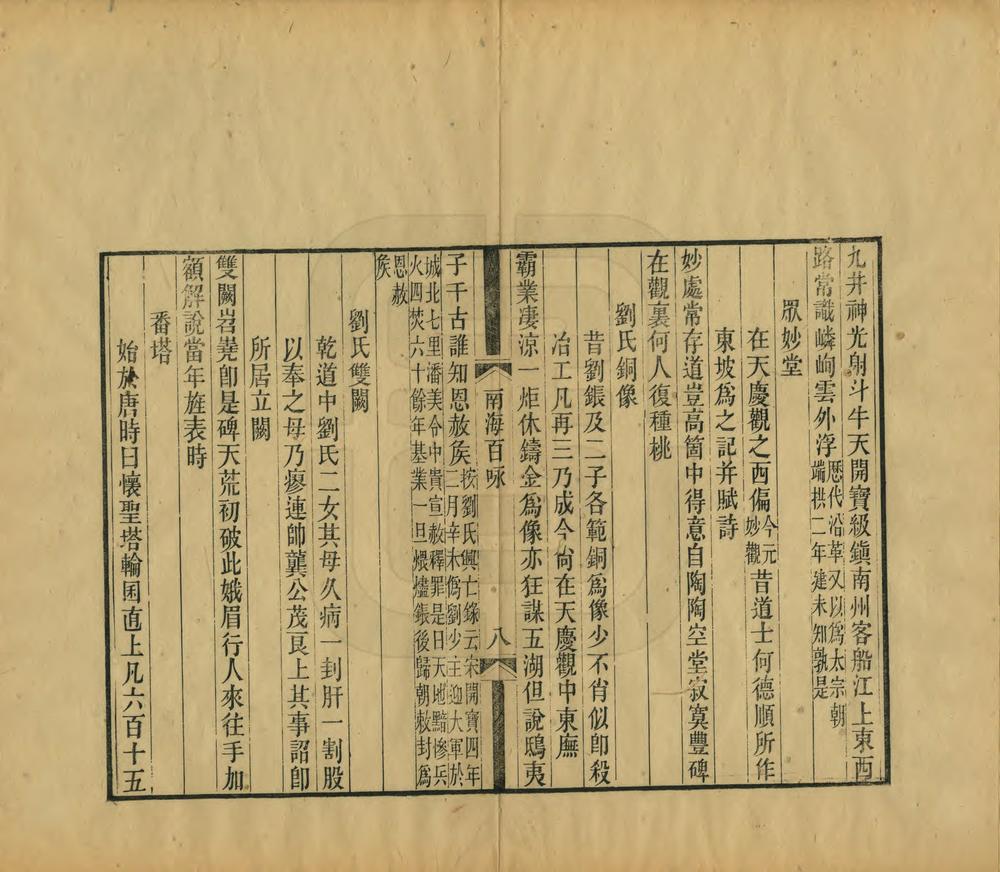 九井神光射斗牛天開寶級鎭南州客船江上東西
路常識嶙峋雲外浮歷代沿革又以爲太宗朝
端拱二年建未知孰是
眾妙堂
在天慶觀之西偏今元
妙觀昔道士何德順所作
東坡爲之記并賦詩
妙處常存道豈高箇中得意自陶陶空堂寂寞豐碑
在觀裏何人復種桃
劉氏銅像
昔劉鋹及二子各範銅爲像少不肖似卽殺
冶工凡再三乃成今尙在天慶觀中東廡
霸業凄涼一炬休鑄金爲像亦狂謀五湖但說鴟夷
南海百咏
八
子千古誰知恩赦矦按劉氏興亡錄云宋開寶四年
二月辛未僞劉少主迎大軍於
城北七里潘美令中貴宣赦釋罪是日天地黯慘兵
火四焚六十餘年基業一旦煨燼鋹後歸朝敕封爲
恩赦
矦
劉氏雙闕
乾道中劉氏二女其母久病一刲肝一割股
以奉之母乃廖連帥龔公茂良上其事詔卽
所居立闕
雙闕岧嶤卽是碑天荒初破此娥眉行人來往手加
額解說當年旌表時
番塔
始於唐時曰懷聖塔輪囷直上凡六百十五